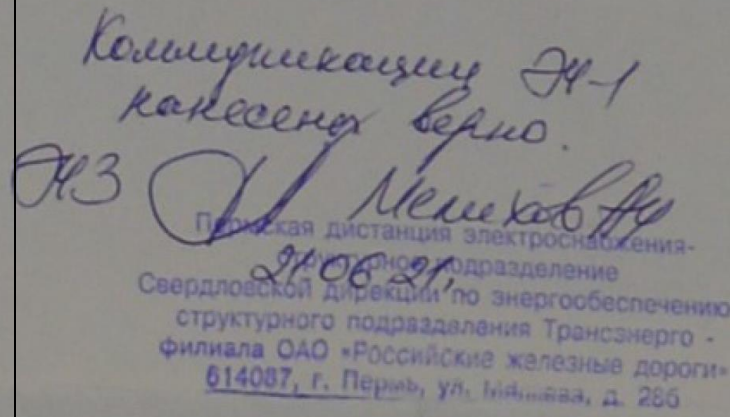 Коммуникации ЭЧ-1
нанесены верно.
ЭЧЗ Мелихов АЧ
Пермская дистанция электроснабжения-
структурное подразделение
21.06.21,
Свердловской дирекции по энергообеспечению
структурного подразделения Трансэнерго -
филиала ОАО «Российские железные дороги»
614087, г. Пермь, ул. д. 28б